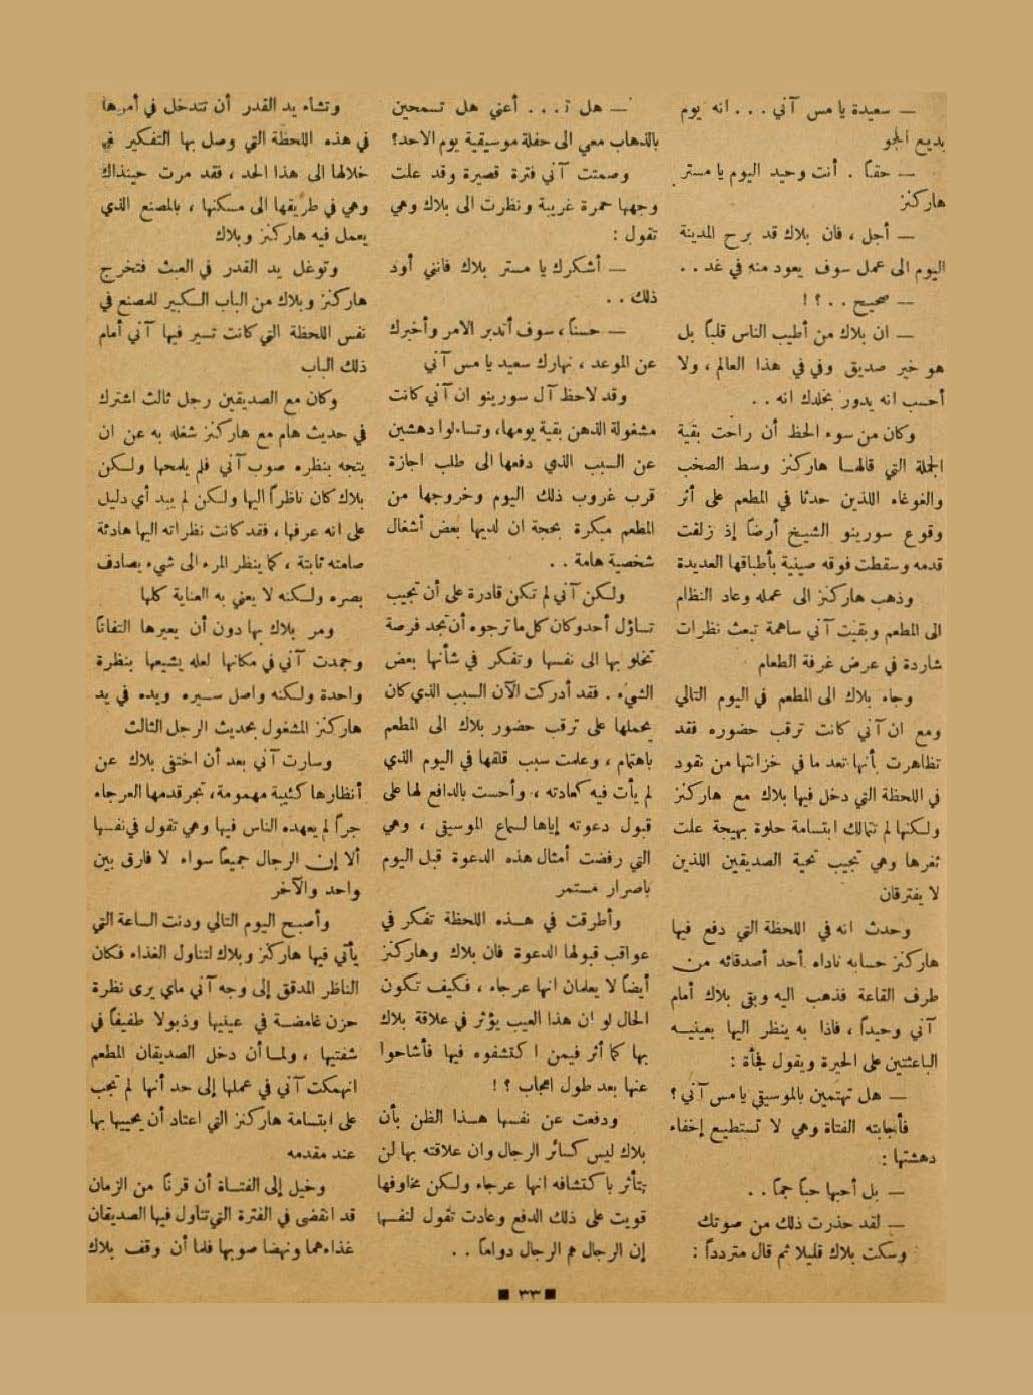 — سعيدة يا مس آني ... انه يوم
بديع الجو
— حقاً . أنت وحيد اليوم يا مستر
هاركنز
— أجل ، فان بلاك قد برح المدينة
اليوم الى عمل سوف يعود منه في غد ..
— صحيح .. ؟ !
— ان بلاك من أطيب الناس قلباً بل
هو خير صديق وفي في هذا العالم ، ولا
أحسب انه يدور بخلدك انه ..
وكان من سوء الحظ أن راحت بقية
الجملة التي قالها هاركنز وسط الصخب
والغوغاء اللذين حدثا في المطعم على أثر
وقوع سورينو الشيخ أرضاً إذ زلقت
قدمه وسقطت فوقه صينية بأطباقها العديدة
وذهب هاركنز الى عمله وعاد النظام
الى المطعم وبقيت آني ساهمة تبعث نظرات
شاردة في عرض غرفة الطعام
وجاء بلاك الى المطعم في اليوم التالي
ومع ان آني كانت ترقب حضوره فقد
تظاهرت بأنها تعد ما في خزانتها من نقود
في اللحظة التي دخل فيها بلاك مع هاركنز
ولكنها لم تتمالك ابتسامة حلوة بهيجة علت
ثغرها وهي تجيب تحية الصديقين اللذين
لا يفترقان
وحدث انه في اللحظة التي دفع فيها
هاركنز حسابه ناداه أحد أصدقائه من
طرف القاعة فذهب اليه وبقي بلاك أمام
آني وحيداً ، فاذا به ينظر اليها بعينيه
الباعثتين على الحيرة ويقول فجأة :
— هل تهتمين بالموسيقي يا مس آني ؟
فأجابته الفتاة وهي لا تستطيع إخفاء
دهشتها :
— بل أحبها حباً جماً ..
— لقد حذرت ذلك من صوتك
وسكت بلاك قليلا ثم قال متردداً :
— هل ت... أعني هل تسمحين
بالذهاب معي الى حفلة موسيقية يوم الاحد ؟
وصمتت آني فترة قصيرة وقد علت
وجهها حمرة غريبة ونظرت الى بلاك وهي
تقول :
— أشكرك يا مستر بلاك فانني أود
ذلك ..
— حسناً ، سوف أتدبر الامر وأخبرك
عن الموعد ، نهارك سعيد يا مس آني
وقد لاحظ آل سورينو ان آني كانت
مشغولة الذهن بقية يومها، وتساءلوا دهشين
عن السبب الذي دفعها الى طلب اجازة
قرب غروب ذلك اليوم وخروجها من
المطعم مبكرة بحجة ان لديها بعض أشغال
شخصية هامة ..
ولكن آني لم تكن قادرة على أن تجيب
تساؤل أحد وكان كل ما ترجوه أن تجد فرصة
تخلو بها الى نفسها وتفكر في شأنها بعض
الشيء . فقد أدركت الآن السبب الذي كان
يحملها على ترقب حضور بلاك الى المطعم
باهتمام ، وعلمت سبب قلقها في اليوم الذي
لم يأت فيه كعادته ، وأحست بالدافع لها على
قبول دعوته إياها لسماع الموسيقى ، وهي
التي رفضت أمثال هذه الدعوة قبل اليوم
باصرار مستمر
وأطرقت في هذه اللحظة تفكر في
عواقب قبولها الدعوة فان بلاك وهاركنز
أيضاً لا يعلمان انها عرجاء ، فكيف تكون
الحال لو ان هذا العيب يؤثر في علاقة بلاك
بها كما أثر فيمن اكتشفوه فيها فأشاحوا
عنها بعد طول اعجاب ؟ !
ودفعت عن نفسها هذا الظن بأن
بلاك ليس كسائر الرجال وان علاقته بها لن
تتأثر باكتشافه انها عرجاء ولكن مخاوفها
قويت على ذلك الدفع وعادت تقول لنفسها
إن الرجال هم الرجال دواماً ..
وتشاء يد القدر أن تتدخل في أمرها
في هذه اللحظة التي وصل بها التفكير في
خلالها الى هذا الحد ، فقد مرت حينذاك
وهي في طريقها الى مسكنها ، بالمصنع الذي
يعمل فيه هاركنز وبلاك
وتوغل يد القدر في العبث فتخرج
هاركنز وبلاك من الباب الكبير للمصنع في
نفس اللحظة التي كانت تسير فيها آني أمام
ذلك الباب
وكان مع الصديقين رجل ثالث اشترك
في حديث هام مع هاركنز شغله به عن ان
يتجه بنظره صوب آني فلم يلمحها ولكن
بلاك كان ناظراً اليها ولكن لم يبد أي دليل
على انه عرفها ، فقد كانت نظراته اليها هادئة
صامتة ثابتة ، كما ينظر المرء الى شيء يصادف
بصره ولكنه لا يعني به العناية كلها
ومر بلاك بها دون أن يعيرها التفاتا
وجمدت آني في مكانها لعله يشيعها بنظرة
واحدة ولكنه واصل سيره ويده في يد
هاركنز المشغول بحديث الرجل الثالث
وسارت آني بعد أن اختفى بلاك عن
أنظارها كئيبة مهمومة، تجر قدمها العرجاء
جراً لم يعهده الناس فيها وهي تقول في نفسها
ألا إن الرجال جميعاً سواء لا فارق بين
واحد والآخر
وأصبح اليوم التالي ودنت الساعة التي
يأتي فيها هاركنز وبلاك لتناول الغذاء فكان
الناظر المدقق إلى وجه آني ماي يرى نظرة
حزن غامضة في عينيها وذبولا طفيفاً في
شفتيها ، ولما أن دخل الصديقان المطعم
انهمكت آني في عملها إلى حد أنها لم تجب
على ابتسامة هاركنز التي اعتاد أن يحييها بها
عند مقدمه
وخيل إلى الفتاة أن قرناً من الزمان
قد انقضى في الفترة التي تناول فيها الصديقان
غذاءهما ونهضا صوبها فلما أن وقف بلاك
■ ٣٣ ■